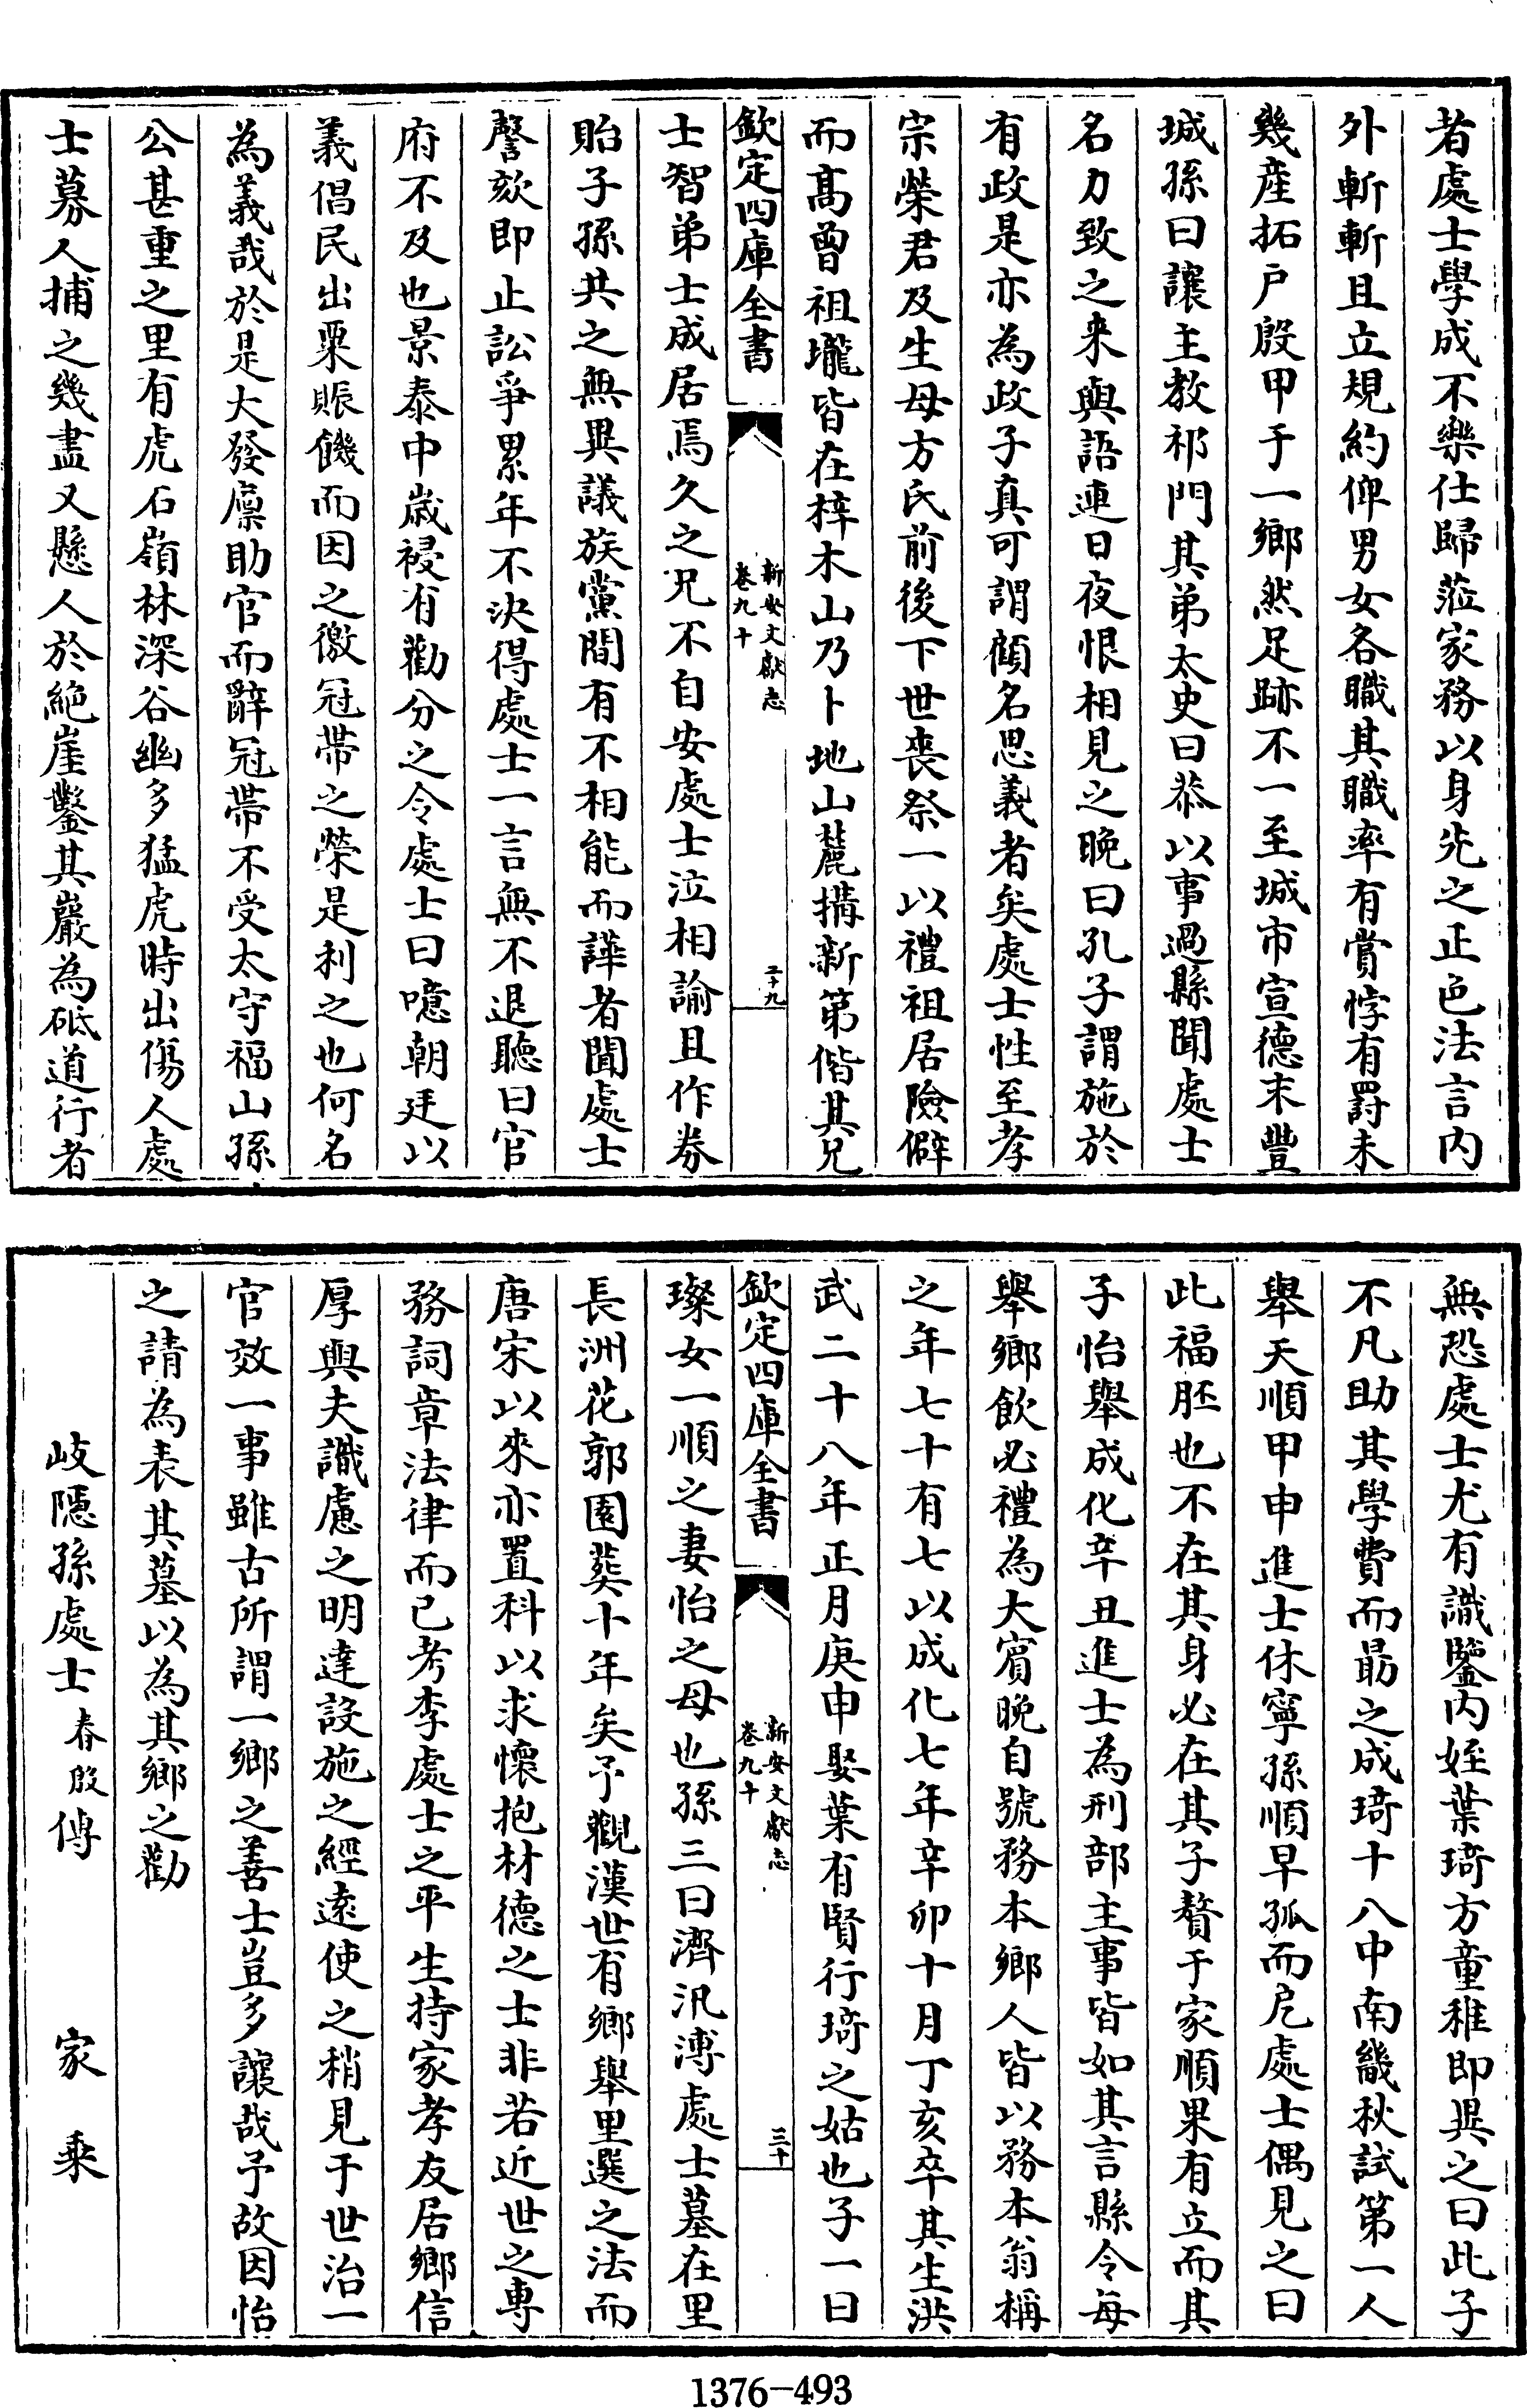 者處士學成不樂仕歸蒞家務以身先之正色法言内
外斬斬且立規約俾男女各職其職率有賞悖有罸未
幾産拓户殷甲于一鄉然足跡不一至城市宣德末豐
城孫曰讓主教祁門其弟太史曰恭以事過縣聞處士
名力致之来與語連日夜恨相見之晚曰孔子謂施於
有政是亦為政子真可謂顧名思義者矣處士性至孝
宗榮君及生母方氏前後下世喪祭一以禮祖居險僻
而髙曽祖壠皆在梓木山乃卜地山麓搆新第偕其兄
欽定四庫全書
新安文獻志
卷九十
二十九
士智弟士成居焉久之兄不自安處士泣相諭且作券
貽子孫共之無異議族黨間有不相能而譁者聞處士
謦欬即止訟爭累年不決得處士一言無不退聽曰官
府不及也景泰中歳祲有勸分之令處士曰噫朝廷以
義倡民出粟賑饑而因之徼冠帶之榮是利之也何名
為義哉於是大發廪助官而辭冠帶不受太守福山孫
公甚重之里有虎石嶺林深谷幽多猛虎時出傷人處
士募人捕之幾盡又懸人於絶崖鑿其巖為砥道行者
無恐處士尤有識鑒内姪葉琦方童稚即異之曰此子
不凡助其學費而勗之成琦十八中南畿秋試第一人
舉天順甲申進士休寧孫順早孤而尫處士偶見之曰
此福胚也不在其身必在其子贅于家順果有立而其
子怡舉成化辛丑進士為刑部主事皆如其言縣令每
舉鄉飲必禮為大賔晚自號務本鄉人皆以務本翁稱
之年七十有七以成化七年辛卯十月丁亥卒其生洪
武二十八年正月庚申娶葉有賢行琦之姑也子一曰
欽定四庫全書
新安文獻志
卷九十
三十
璨女一順之妻怡之母也孫三曰濟汛溥處士墓在里
長洲花郭園葬十年矣予觀漢世有鄉舉里選之法而
唐宋以來亦置科以求懷抱材德之士非若近世之專
務詞章法律而已考李處士之平生持家孝友居鄉信
厚與夫識慮之明達設施之經逺使之稍見于世治一
官效一事雖古所謂一鄉之善士豈多讓哉予故因怡
之請為表其墓以為其鄉之勸
岐隱孫處士春殷傳　家乘
1376-493